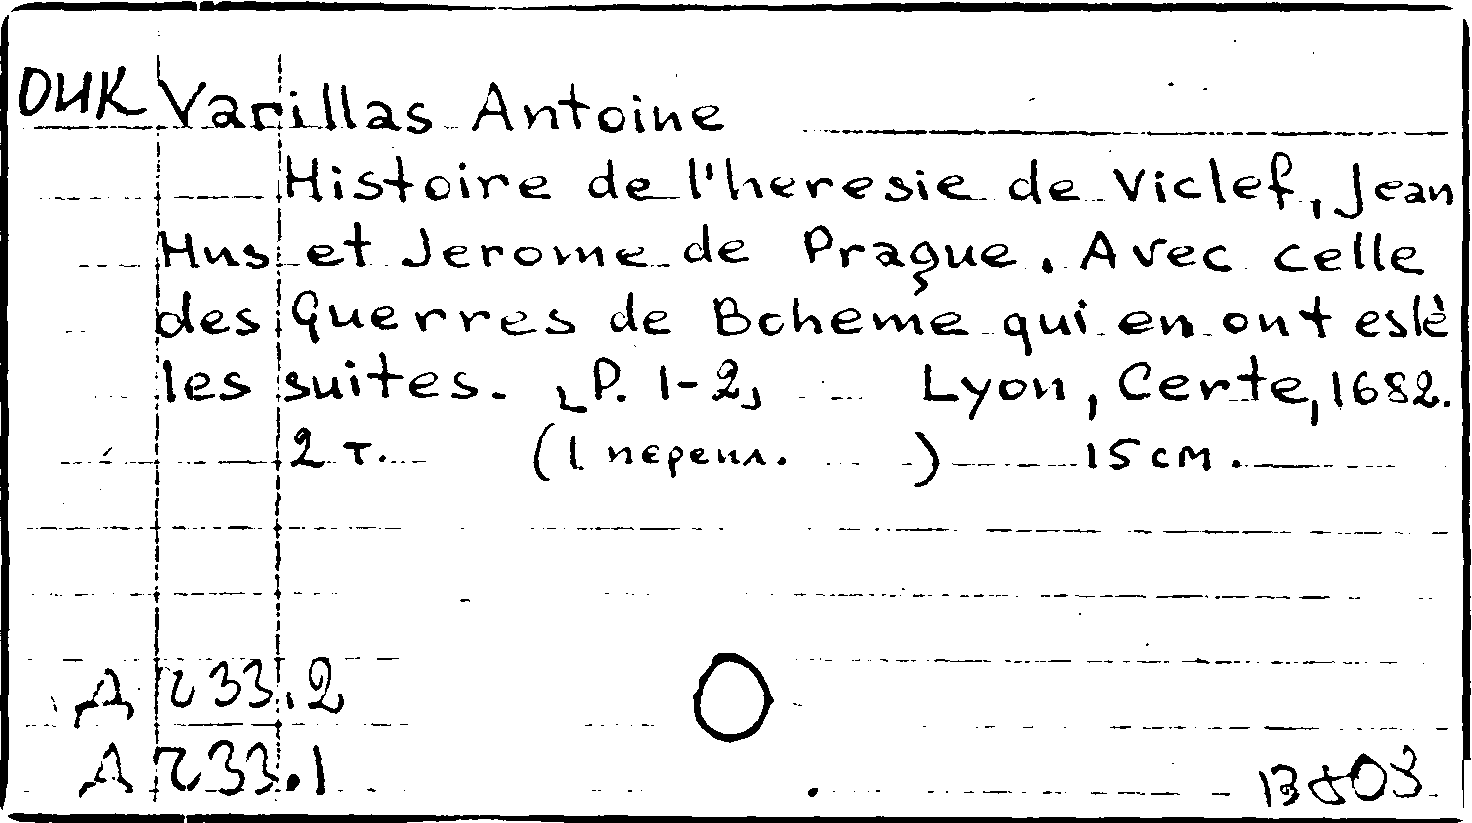 ОИК Varillas Antoine
Histoire de l'heresie de Viclef, Jean
Hus et Jerome de Prague. Avec celle
des Guerres de Boheme qui en ont estè
les suites. [P. 1-2] Lyon, Certe, 1682.
2 т. (1 перепл. ) 15 см.
Д 233.2
Д 233.1